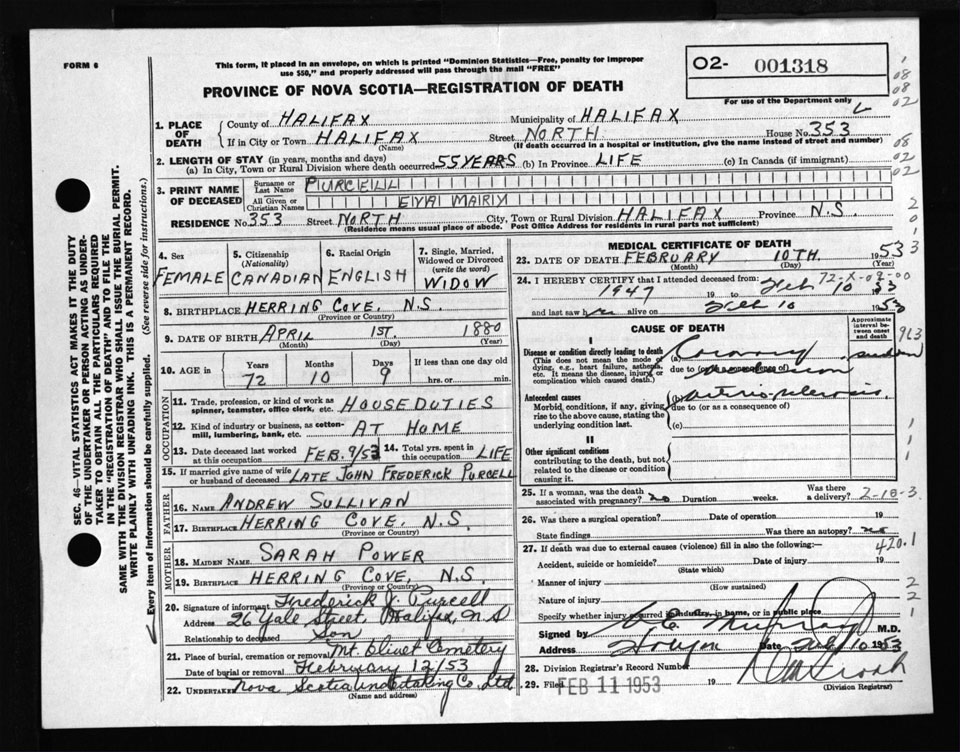 FORM 6
This form, if placed in an envelope, on which is printed "Dominion Statistics—Free, penalty for improper
use $50," and properly addressed will pass through the mail "FREE"
PROVINCE OF NOVA SCOTIA—REGISTRATION OF DEATH
02- 001318
For use of the Department only
1. PLACE OF DEATH
County of HALIFAX Municipality of HALIFAX
If in City or Town HALIFAX Street NORTH House No. 353
(Name) (If death occurred in a hospital or institution, give the name instead of street and number)
2. LENGTH OF STAY (in years, months and days)
(a) In City, Town or Rural Division where death occurred 55 YEARS (b) In Province LIFE (c) In Canada (if immigrant)
3. PRINT NAME OF DECEASED
Surname or Last Name PURCELL
All Given or Christian Names EVA MARY
RESIDENCE No. 353 Street NORTH City, Town or Rural Division HALIFAX Province N.S.
(Residence means usual place of abode. Post Office Address for residents in rural parts not sufficient)
4. Sex FEMALE
5. Citizenship (Nationality) CANADIAN
6. Racial Origin ENGLISH
7. Single, Married, Widowed or Divorced (write the word) WIDOW
8. BIRTHPLACE HERRING COVE, N.S.
(Province or Country)
9. DATE OF BIRTH APRIL 1ST. 1880
(Month) (Day) (Year)
10. AGE in Years 72 Months 10 Days 9 If less than one day old hrs. or min.
OCCUPATION
11. Trade, profession, or kind of work as spinner, teamster, office clerk, etc. HOUSE DUTIES
12. Kind of industry or business, as cotton-mill, lumbering, bank, etc. AT HOME
13. Date deceased last worked at this occupation FEB. 9/53 14. Total yrs. spent in this occupation LIFE
15. If married give name of wife or husband of deceased LATE JOHN FREDERICK PURCELL
FATHER
16. NAME ANDREW SULLIVAN
17. BIRTHPLACE HERRING COVE, N.S.
(Province or Country)
MOTHER
18. MAIDEN NAME SARAH POWER
19. BIRTHPLACE HERRING COVE, N.S.
(Province or Country)
20. Signature of informant Frederick J. Purcell
Address 26 Yale Street, Halifax, N S
Relationship to deceased Son
21. Place of burial, cremation or removal Mt. Olivet Cemetery
Date of burial or removal February 12/53
22. Undertaker Nova Scotia Undertaking Co., Ltd
(Name and address)
MEDICAL CERTIFICATE OF DEATH
23. DATE OF DEATH FEBRUARY 10TH. 1953
(Month) (Day) (Year)
24. I HEREBY CERTIFY that I attended deceased from:
1947 19 to Feb 10 53
and last saw her alive on Feb 10 1953
CAUSE OF DEATH
Approximate interval between onset and death
I
Disease or condition directly leading to death (a) Coronary sudden
(This does not mean the mode of dying, e.g., heart failure, asthenia, etc. It means the disease, injury or complication which caused death.)
due to (or as a consequence of) occlusion
Antecedent causes (b) arterio sclerosis.
Morbid conditions, if any, giving rise to the above cause, stating the underlying condition last.
due to (or as a consequence of)
(c)
II
Other significant conditions
contributing to the death, but not related to the disease or condition causing it
25. If a woman, was the death associated with pregnancy? no Duration weeks. Was there a delivery?
26. Was there a surgical operation? Date of operation 19
State findings Was there an autopsy? no
27. If death was due to external causes (violence) fill in also the following:—
Accident, suicide or homicide? Date of injury 19
(State which)
Manner of injury
(How sustained)
Nature of injury
Specify whether injury occurred in industry, in home, or in public place
Signed by Murray M.D.
Address Date Feb 10 1953
28. Division Registrar's Record Number
29. Filed FEB 11 1953 19
(Division Registrar)
420.1
SEC. 46—VITAL STATISTICS ACT MAKES IT THE DUTY
OF THE UNDERTAKER OR PERSON ACTING AS UNDER-
TAKER TO OBTAIN ALL THE PARTICULARS REQUIRED
IN THE "REGISTRATION OF DEATH" AND TO FILE THE
SAME WITH THE DIVISION REGISTRAR WHO SHALL ISSUE THE BURIAL PERMIT.
WRITE PLAINLY WITH UNFADING INK. THIS IS A PERMANENT RECORD.
Every item of information should be carefully supplied. (See reverse side for instructions.)